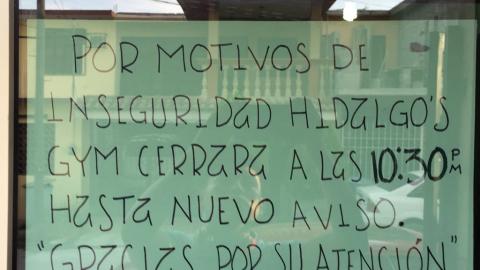 POR MOTIVOS DE
INSEGURIDAD HIDALGO'S
GYM CERRARA A LAS 10:30 PM
HASTA NUEVO AVISO.
"GRACIAS POR SU ATENCIÓN"